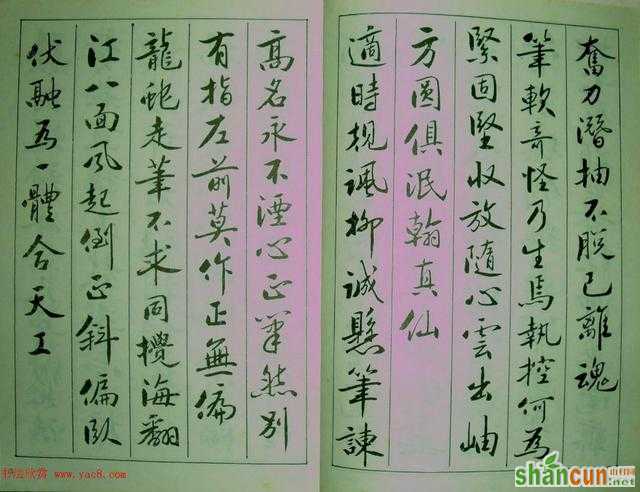 奮力潛抽不脫己離魂
筆軟奇怪乃生焉執控何為
緊固堅收放隨心雲出岫
方圓俱泯翰真仙
適時規諷柳誠懸筆諫
高名永不湮心正筆然別
有指左前莫作正無偏
龍蛇走筆不求同攪海翻
江八面風起倒正斜偏臥
伏融為一體合天工
书法欣赏 www.yac8.com
shancun
.net